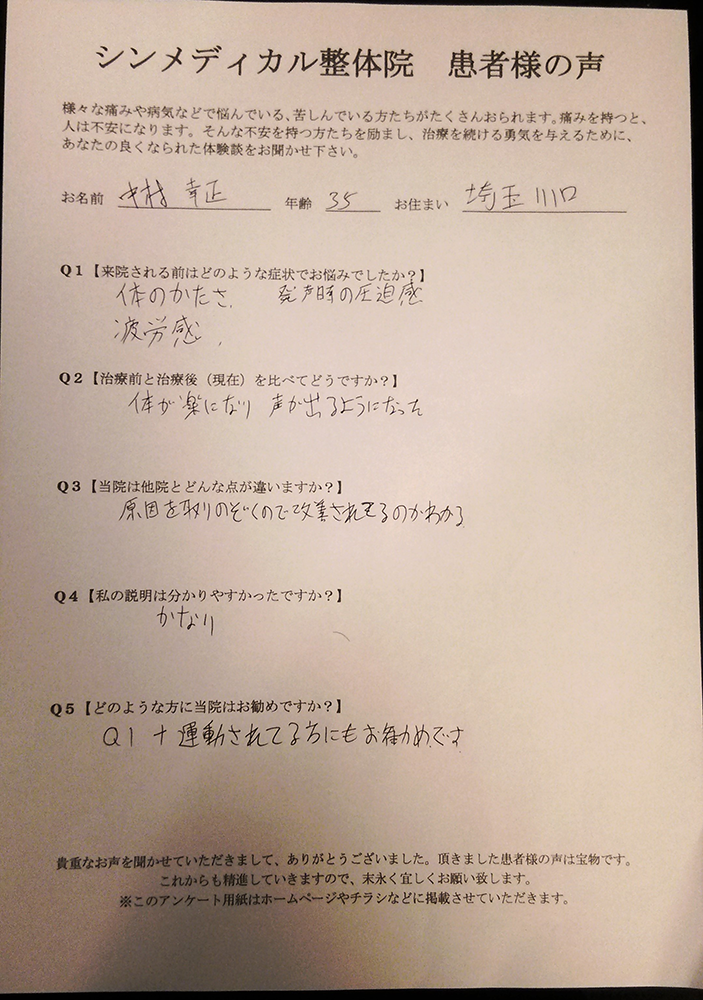 シンメディカル整体院　患者様の声
様々な痛みや病気などで悩んでいる、苦しんでいる方たちがたくさんおられます。痛みを持つと、
人は不安になります。そんな不安を持つ方たちを励まし、治療を続ける勇気を与えるために、
あなたの良くなられた体験談をお聞かせ下さい。
お名前 中村 幸正 年齢 35 お住まい 埼玉 川口
Q1【来院される前はどのような症状でお悩みでしたか？】
体のかたさ、 発声時の圧迫感
疲労感、
Q2【治療前と治療後（現在）を比べてどうですか？】
体が楽になり 声が出るようになった
Q3【当院は他院とどんな点が違いますか？】
原因を取りのぞくので改善されてるのがわかる
Q4【私の説明は分かりやすかったですか？】
かなり
Q5【どのような方に当院はお勧めですか？】
Q1 + 運動されてる方にもお勧めです
貴重なお声を聞かせていただきまして、ありがとうございました。頂きました患者様の声は宝物です。
これからも精進していきますので、末永く宜しくお願い致します。
※このアンケート用紙はホームページやチラシなどに掲載させていただきます。